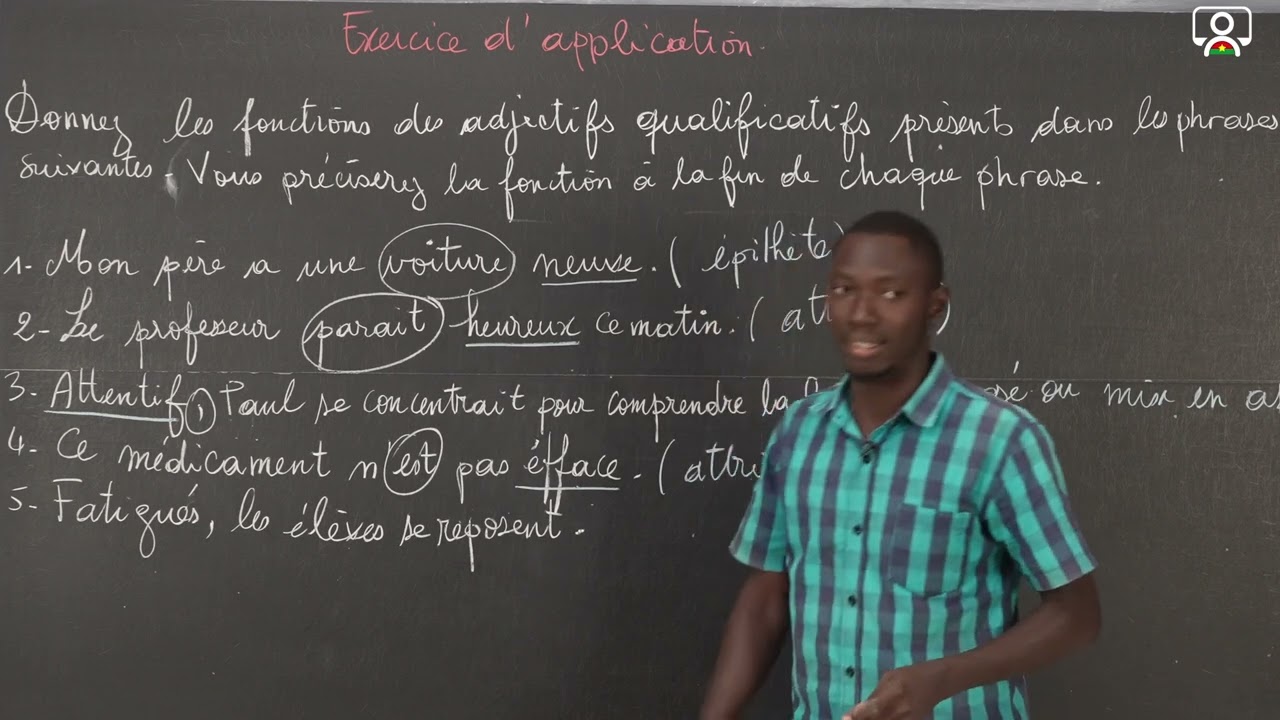 Exercice d'application.
Donnez les fonctions des adjectifs qualificatifs présents dans les phrases
suivantes. Vous préciserez la fonction à la fin de chaque phrase.
1- Mon père a une voiture neuse. (épithète)
2- Le professeur parait heureux ce matin. (
3- Attentif, Paul se concentrait pour comprendre la ou mix en
4- Ce médicament n'est pas éfface. (
5- Fatigués, les élèves se reposent.